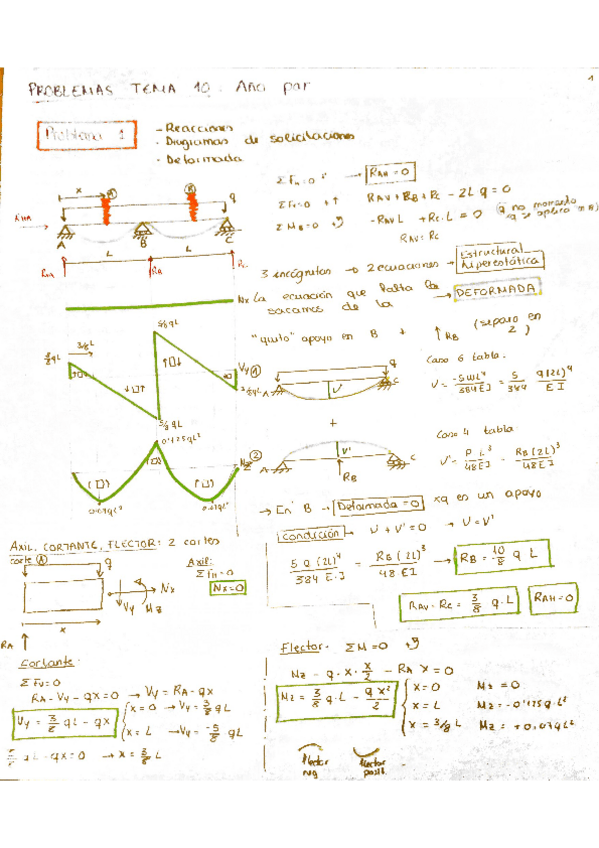 1
PROBLEMAS TEMA 10. Año par
Problema 1
- Reacciones
· Diagramas de solicitaciones
· Deformada
x
q
A
B
C
L
L
RA
RB
Rc
Σ FH = 0 → RAH = 0
Σ Fv = 0 + ↑ RAV + RB + Rc - 2L q = 0
Σ MB = 0 - RAV L + Rc · L = 0 (q no momento xq se aplica en B)
RAV = Rc
3 incógnitas → 2 ecuaciones → Estructura hiperestática
La ecuación que falta la sacamos de la → DEFORMADA
Nx
"quito" apoyo en B + ↑ RB (separo en 2)
3/8 qL
5/8 qL
Vy
3/8 qL
5/8 qL
0.125 qL²
Mz
0.07 qL²
0.07 qL²
①
A
C
q
v
Caso 6 tabla.
v = -5wL⁴/384EI = 5/384 q(2L)⁴/EI
+
②
A
C
v'
RB
Caso 4 tabla
v' = P L³/48EI = RB (2L)³/48EI
→ En B → Deformada = 0 xq es un apoyo
Condición → v + v' = 0 → v = v'
5 q (2L)⁴/384 E·I = RB (2L)³/48 EI → RB = 10/8 q L
RAV = Rc = 3/8 q · L
RAH = 0
AXIL, CORTANTE, FLECTOR: 2 cortes
corte A
q
Nx
Vy
Mz
x
RA ↑
Axil:
Σ FH = 0
Nx = 0
Cortante:
Σ Fv = 0
RA - Vy - qx = 0 → Vy = RA - qx
Vy = 3/8 qL - qx
x = 0 → Vy = 3/8 qL
x = L → Vy = -5/8 qL
L - qx = 0 → x = 3/8 L
Flector. Σ M = 0
Mz - q · x · x/2 - RA x = 0
Mz = 3/8 q · L - qx²/2
x = 0 Mz = 0
x = L Mz = -0'125 q·L²
x = 3/8 L Mz = +0,07 qL²
flector neg
flector posit.